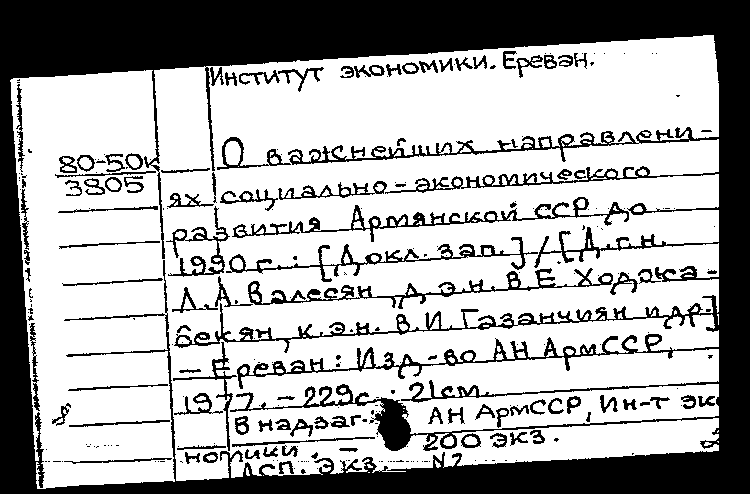 Институт экономики. Ереван.
80-50к
3805
О важнейших направлени-
ях социально-экономического
развития Армянской ССР до
1990 г.: [Докл. зап.] / [Д.г.н.
Л.А. Валесян, д.э.н. В.Е. Ходжа-
бекян, к.э.н. В.И. Газанчиян и др.]
– Ереван: Изд-во АН АрмССР,
1977. – 229с.; 21см.
В надзаг. АН АрмССР, Ин-т эко
номики. – 200 экз.
Экз. N2